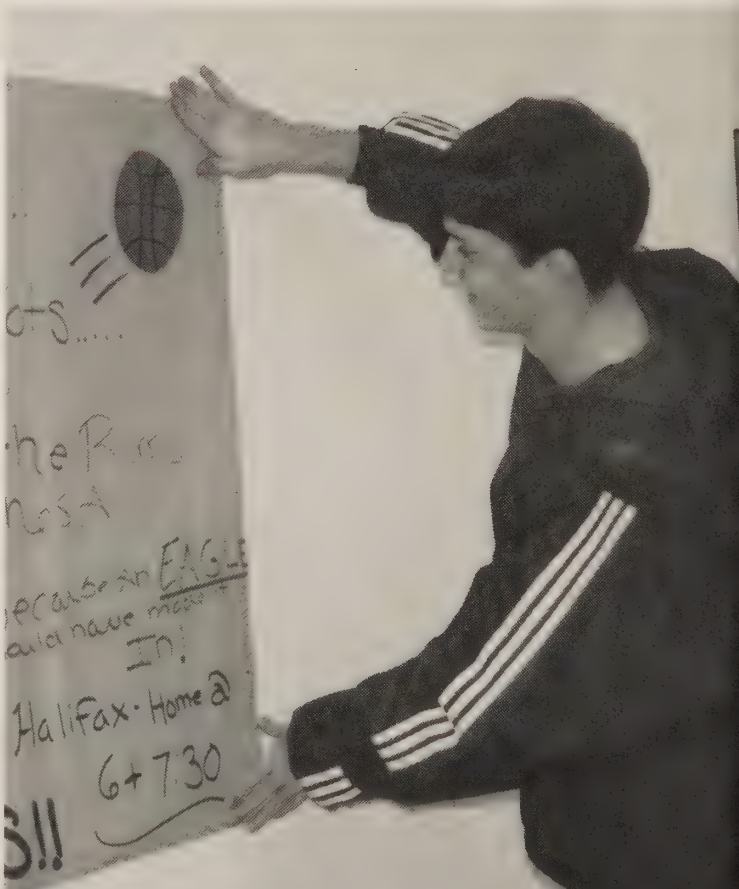 ..
ots.....
he R
ecause an EAGLE
ould have made it
In!
Halifax. Home @
6+ 7:30
S!!